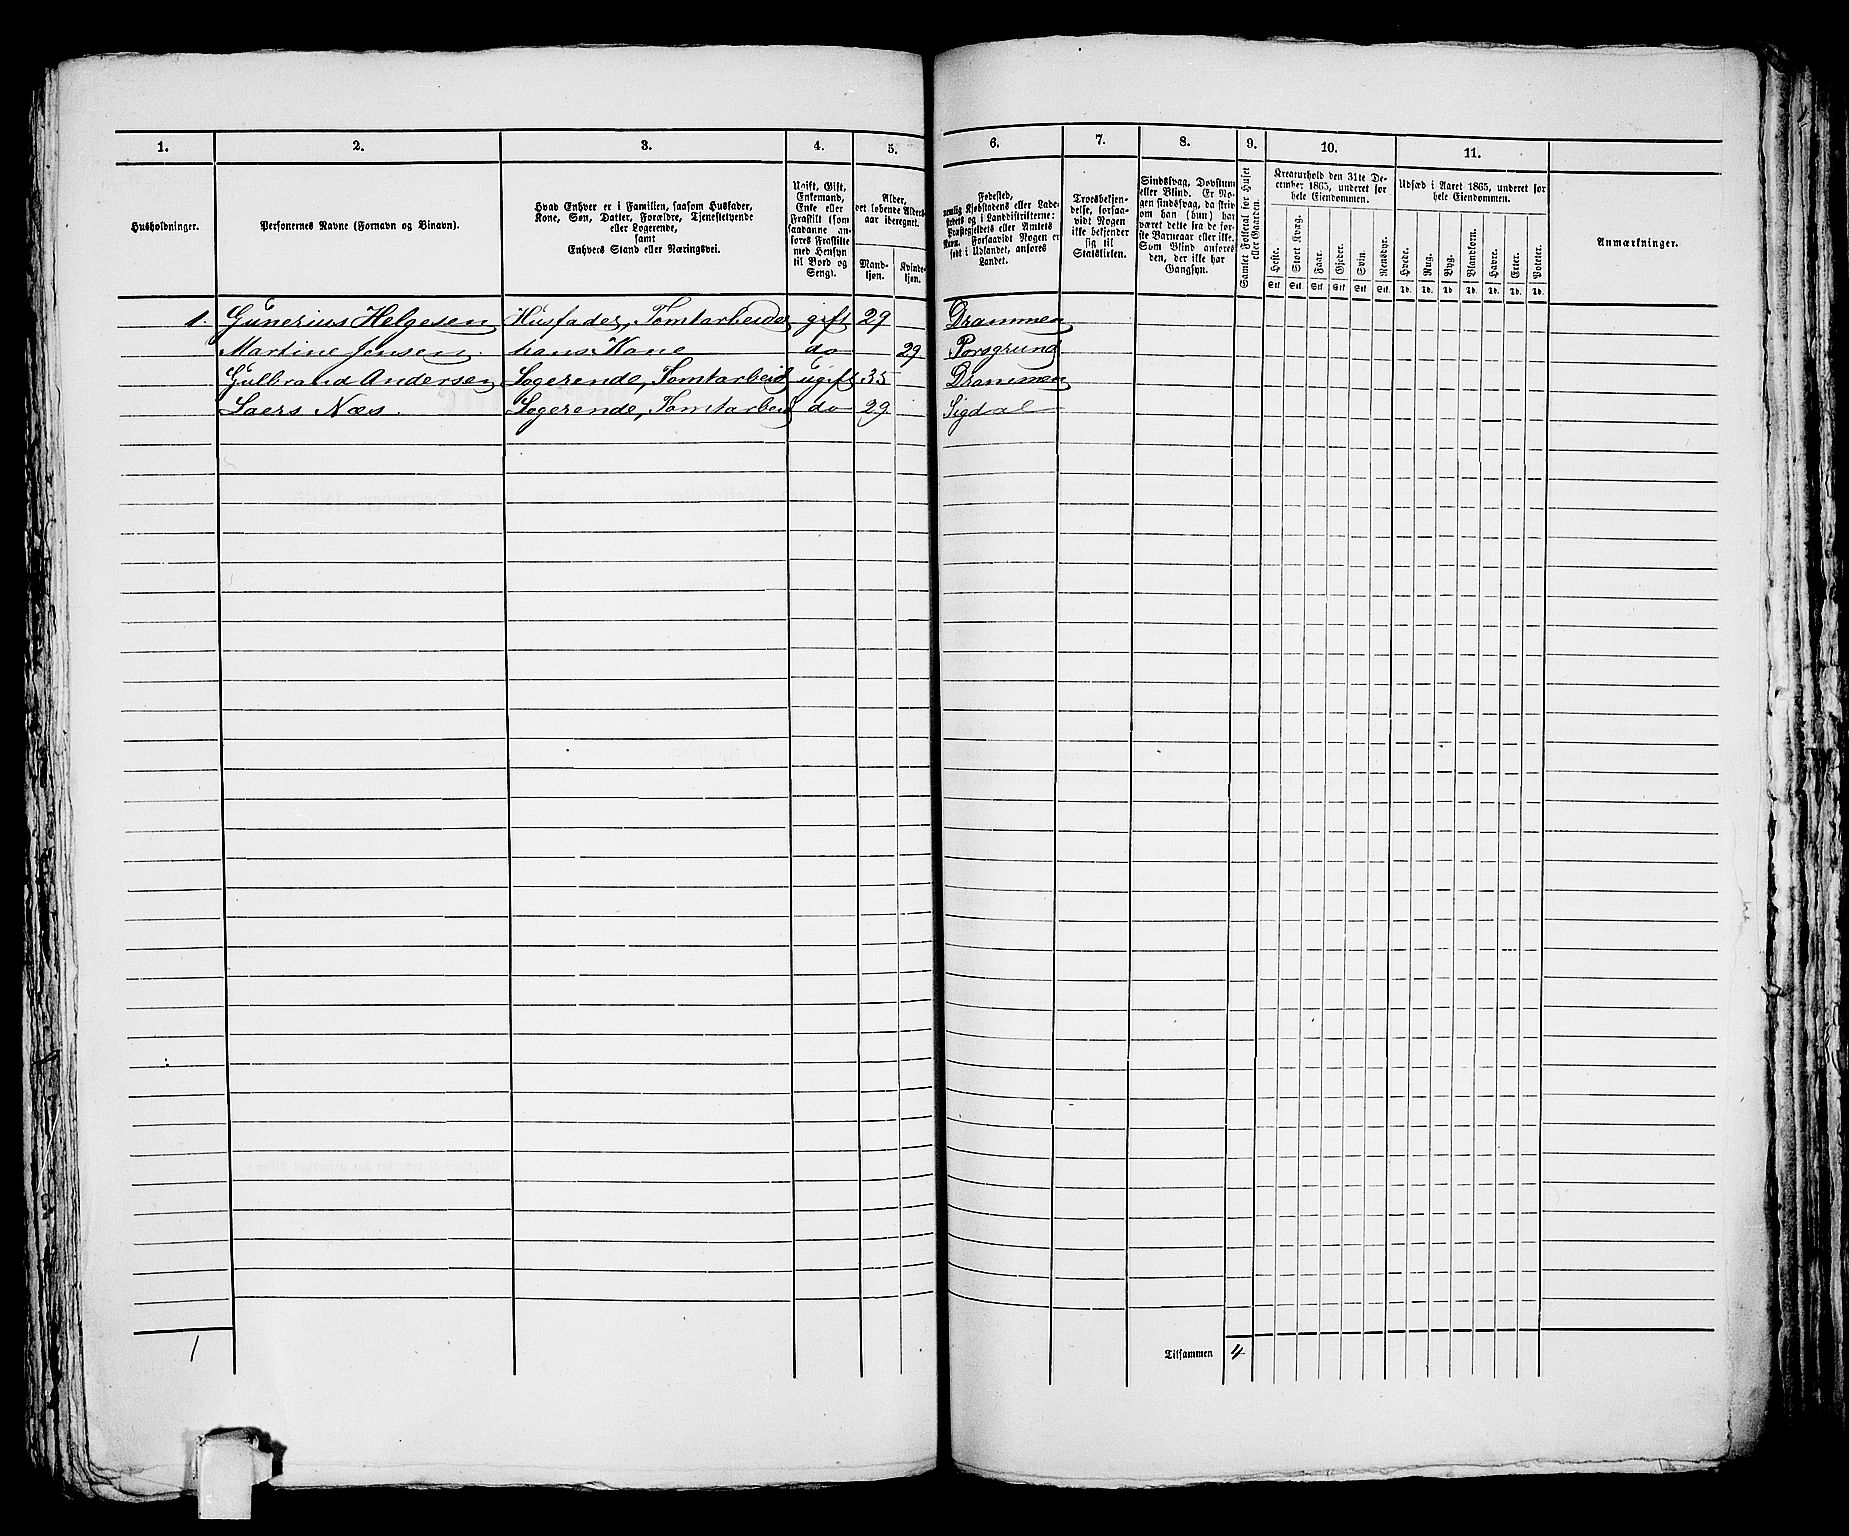 1. 2. 3. 4. 5. 6. 7. 8. 9. 10. 11.
Husholdninger.
Personernes Navne (Fornavn og Binavn).
Hvad Enhver er i Familien, saasom Husfader,
Kone, Søn, Datter, Forældre, Tjenestetyende
eller Logerende,
samt
Enhvers Stand eller Næringsvei.
Ugift, Gift,
Enkemand,
Enke eller
Fraskilt (som
saadanne an-
føres Fraskilte
med Hensyn
til Bord og
Seng).
Alder,
det løbende Alders-
aar iberegnet.
Mand-
kjøn.
Kvinde-
kjøn.
Fødested,
nemlig Kjøbstadens eller Lade-
stedets og i Landdistrikterne:
Præstegjeldets eller Amtets
Navn. Forsaavidt Nogen er
født i Udlandet, anføres
Landet.
Troesbekjen-
delse, forsaa-
vidt Nogen
ikke bekjender
sig til
Statskirken.
Sindssvag, Døvstum
eller Blind. Er No-
gen sindssvag, da skriv
om han (hun) har
været dette fra de før-
ste Barneaar eller ikke.
Som Blind anføres
den, der ikke har
Gangsyn.
Samlet Folketal for Huset
eller Gaarden.
Kreaturhold den 31te De-
cember 1865, underet for
hele Eiendommen.
Heste. Stort Kvæg. Faar. Gjeder. Svin. Rensdyr.
Stk. Stk. Stk. Stk. Stk. Stk.
Udsæd i Aaret 1865, underet for
hele Eiendommen.
Hvede. Rug. Byg. Blankorn. Havre. Erter. Poteter.
Td. Td. Td. Td. Td. Td. Td.
Anmærkninger.
1. Gunerius Helgesen Husfader, Tomtarbeider gift 29 Drammen
Martine Jensen. hans Kone do 29 Porsgrund
Gulbrand Andersen Logerende, Tomtarbeid ugift 35 Drammen
Laers Næs. Logerende, Tomtarbeid do 29 Sigdal
1
Tilsammen 4